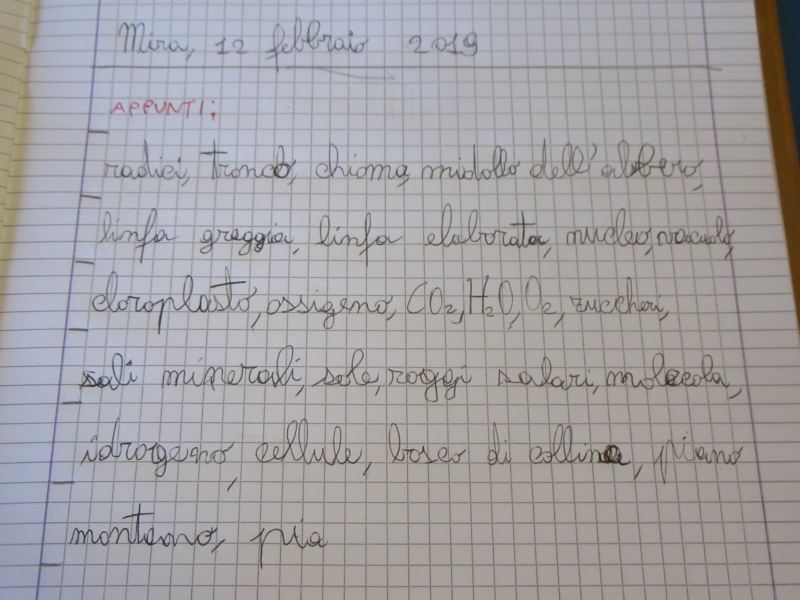 Mira, 12 febbraio 2019
APPUNTI:
radici, tronco, chioma, midollo dell'albero,
linfa greggia, linfa elaborata, nucleo, vacuolo,
cloroplasto, ossigeno, CO₂, H₂O, O₂, zuccheri,
sali minerali, sole, raggi solari, molecola,
idrogeno, cellule, bosco di collina, piano
montano, pia